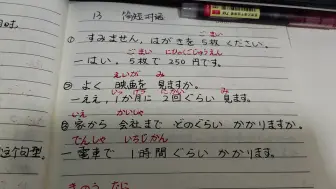 13 简短对话
ごまい
① すみません、はがきを5枚ください。
ごまい にひゃくごじゅうえん
ーはい、5枚で 250円です。
えいがが み
② よく 映画を 見ますか。
いっ げつ にかい み
ーええ、1か月に 2回ぐらい 見ます。
いえ かいしゃ
家から 会社まで どのぐらい かかりますか。
でんしゃ いちじかん
ー電車で 1時間ぐらい かかります。
这个句型。
きのう なに